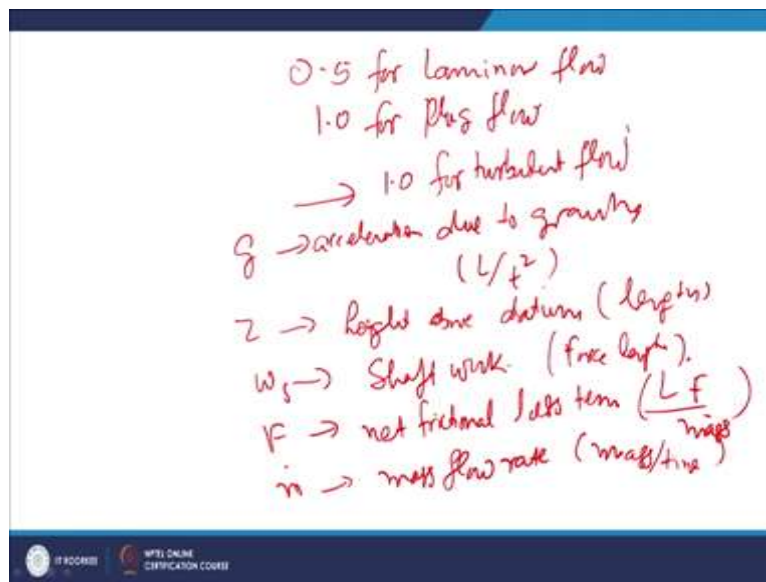 0.5 for Laminar flow
1.0 for Plug flow
→ 1.0 for turbulent flow
g → acceleration due to gravity
(L/t²)
z → height above datum (length)
Ws → Shaft work. (force length).
F → net frictional loss term (L F / mass)
ṁ → mass flow rate (mass/time)
IIT ROORKEE
NPTEL ONLINE
CERTIFICATION COURSE